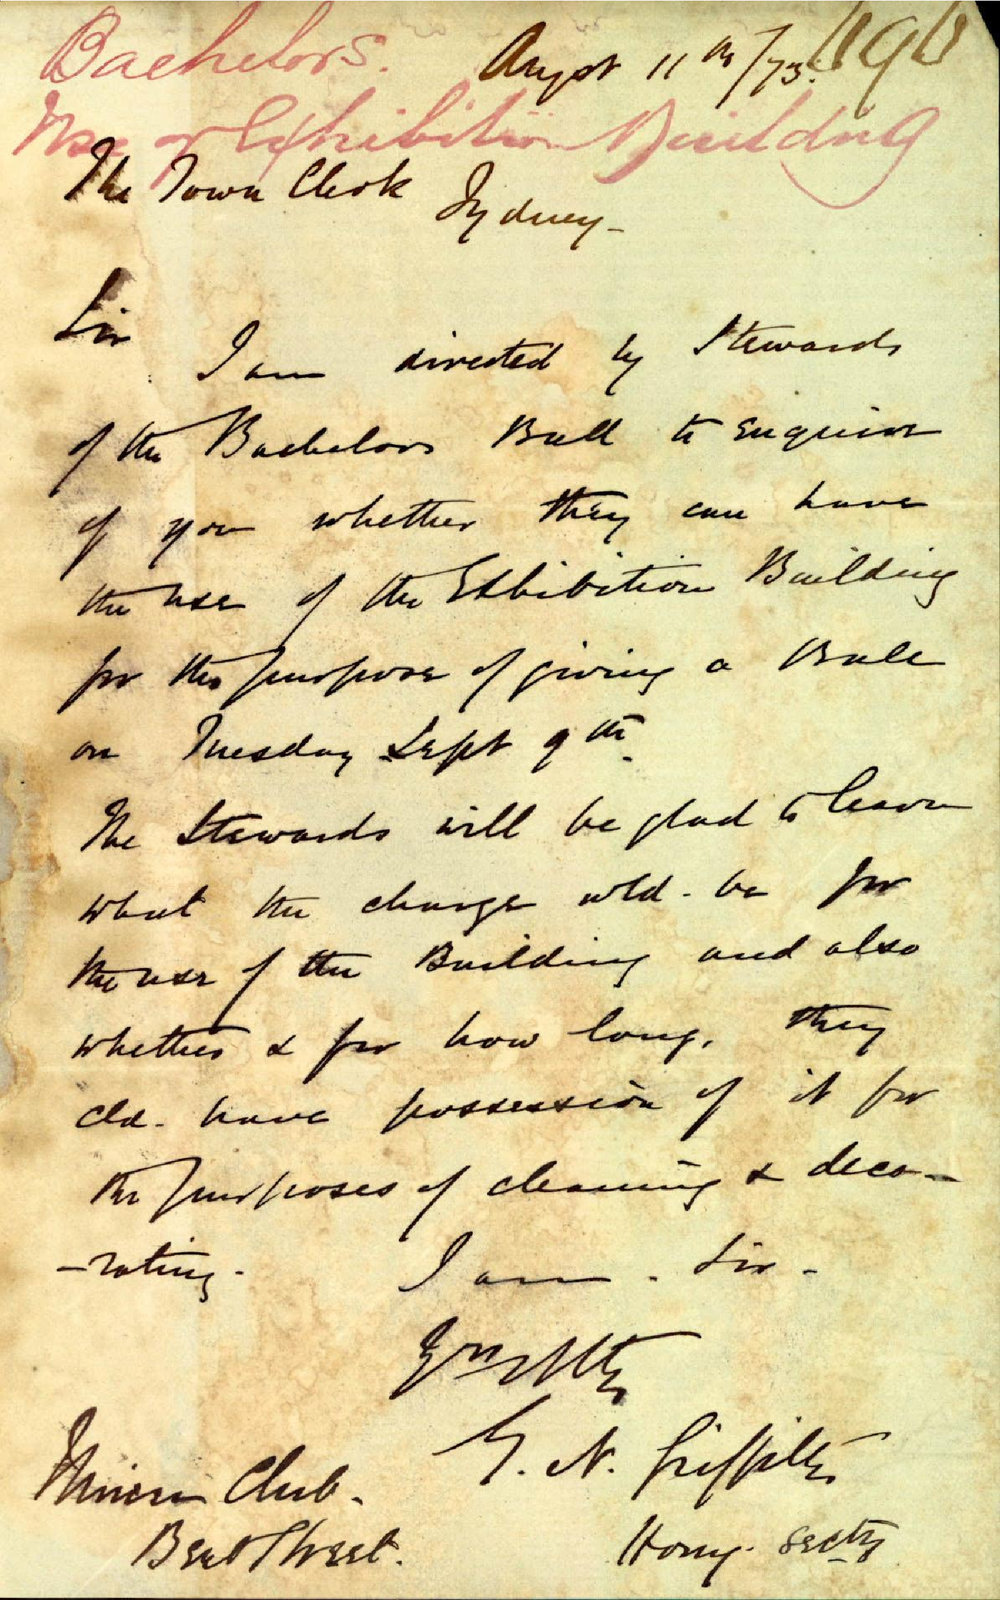 Bachelors.
August 11th/73.
Use of Exhibition Building
The Town Clerk
Sydney -
Sir
I am directed by Stewards
of the Bachelors Ball to enquire
of you whether they can have
the use of the Exhibition Building
for the purpose of giving a Ball
on Tuesday Sept 9th.
The Stewards will be glad to learn
what the charge wld. be for
the use of the Building and also
whether & for how long, they
cld. have possession of it for
the purposes of cleaning & deco-
-rating.
I am. Sir -
G. N. Griffiths
Honry. Secty
Club.
Bent Street.